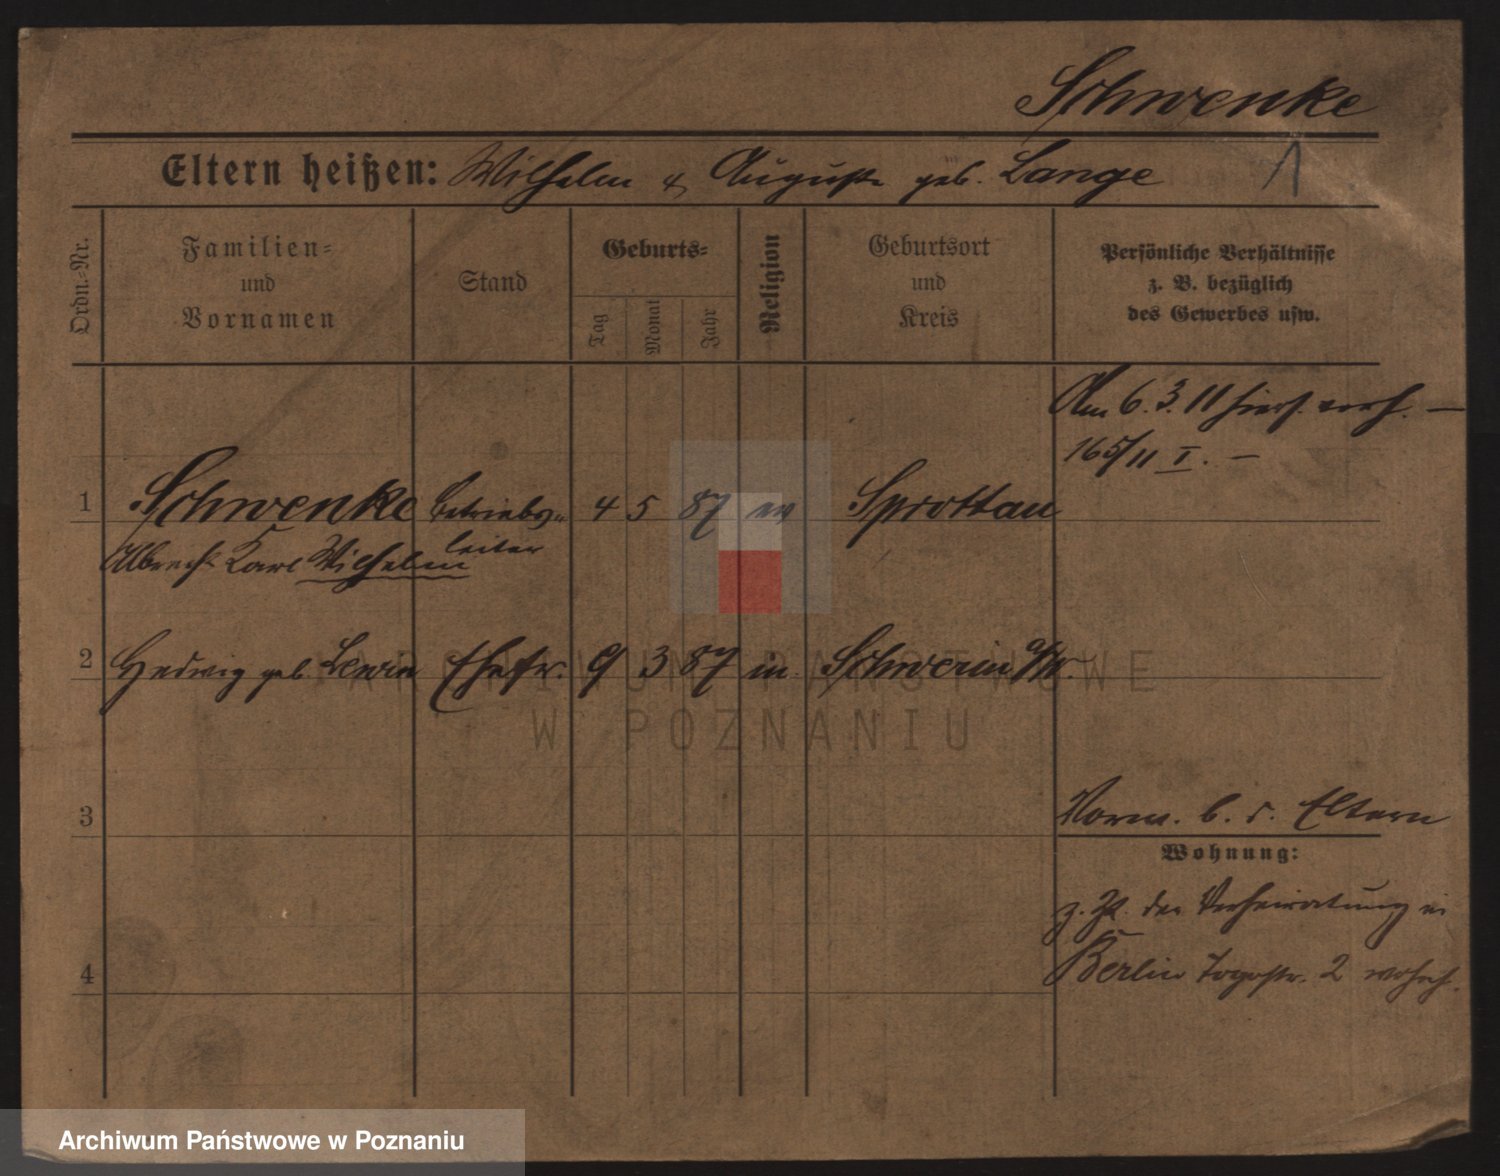 Schwenke
Eltern heißen: Wilhelm & Auguste geb. Lange 1
Ordn.-Nr.
Familien-
und
Vornamen
Stand
Geburts-
Tag
Monat
Jahr
Religion
Geburtsort
und
Kreis
Persönliche Verhältnisse
z. B. bezüglich
des Gewerbes usw.
Am 6.3.11 hiers. verh. —
165/11 I. —
1 Schwenke Betriebs- 4 5 87 ev Sprottau
leiter
Albrecht Karl Wilhelm
2 Hedwig geb. Lewin Ehefr. 9 3 87 m. Schwerin a/W.
ARCHIWUM PAŃSTWOWE
W POZNANIU
3
Vorm. b. d. Eltern
Wohnung:
z. Zt. der Verheiratung in
4
Berlin Togostr. 2 wohnh.
Archiwum Państwowe w Poznaniu